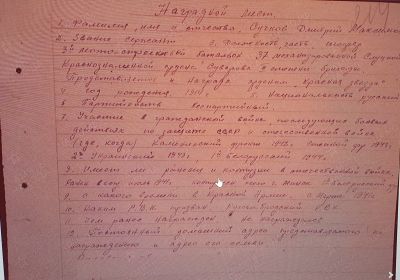 Наградной лист.
1. Фамилия, имя и отчество, Сучков Дмитрий Максимов
2. Звание сержант 3. Должность часть шофер
3го мото-стрелковый батальон 37 механизированной Слуцкой
Краснознаменной ордена Суворова II степени бригады
Представление к награде орденом "Красная звезда"
4 год рождения, 1910 5 Национальность русский
6 Партийность беспартийный.
7. Участие в гражданской войне, последующих боевых
действиях по защите СССР и отечественной войне
(где, когда) Калининский фронт 1942. Степной фр 1943.
2й Украинский 1943, 1й Белорусский 1944.
8. Имеет ли ранения и контузии в отечественной войне.
Ранен г. Минск
9 С какого времени в Красной Армии с Марта 1941 г.
10 Каким РВК призван
11 Чем ранее награжден не награждался
12 Постоянный домашний адрес представляемого к
награждению и адрес его семьи.